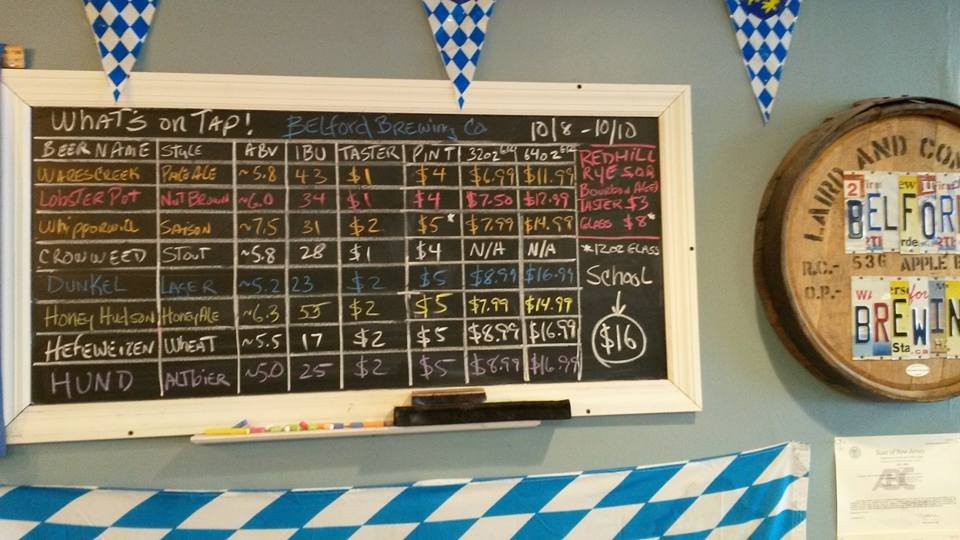 WHAT'S on TAP! BELFORD BREWING Co 10/8 - 10/10
BEER NAME STYLE ABV IBU TASTER PINT 32oz 64oz
WARESCREEK PALE ALE ~5.8 43 $1 $4 $6.99 $11.99
LOBSTER POT NUT BROWN ~6.0 34 $1 $4 $7.50 $12.99
WHIPPORWILL SAISON ~7.5 31 $2 $5* $7.99 $14.99
CROWWEED STOUT ~5.8 28 $1 $4 N/A N/A
DUNKEL LAGER ~5.2 23 $2 $5 $8.99 $16.99
HONEY HUDSON HONEY ALE ~6.3 55 $2 $5 $7.99 $14.99
HEFEWEIZEN WHEAT ~5.5 17 $2 $5 $8.99 $16.99
HUND ALTBIER ~5.0 25 $2 $5 $8.99 $16.99
RED HILL
RYE
BOURBON AGED
TASTER $3
GLASS $8*
*12OZ GLASS
SCHOOL
$16
LAIRD AND CO
BELFOR
R.C.- 53G APPLE B
O.P.-
BREWIN
Sta
State of New Jersey
ABC